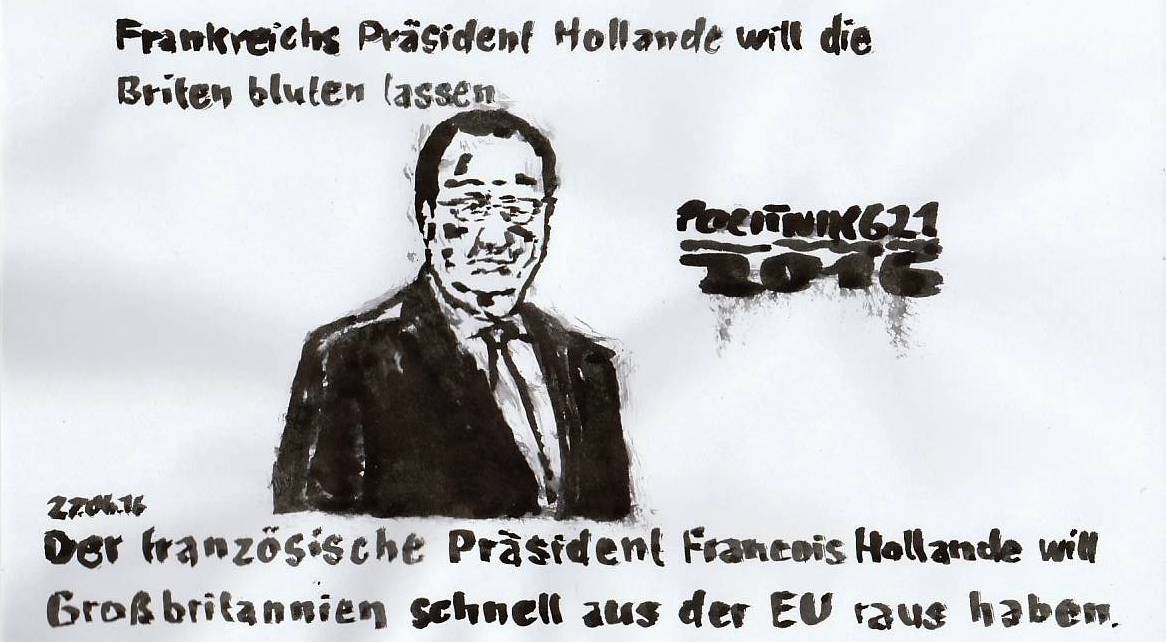 Frankreichs Präsident Hollande will die
Briten bluten lassen
2016
27.06.16
Der französische Präsident Francois Hollande will
Großbritannien schnell aus der EU raus haben.